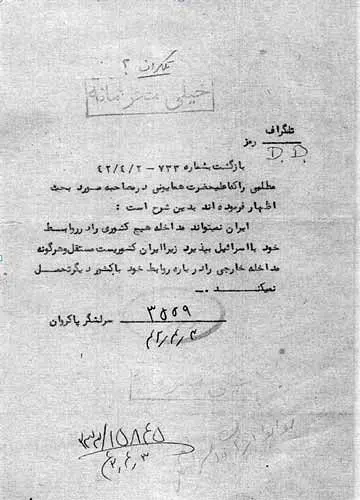 تلگراف ؟
خیلی محرمانه
تلگراف
رمز
D. D.
بازگشت بشماره ۷۳۳ – ۴۲/۴/۲
مطلبی راکه اعلیحضرت همایونی در مصاحبه مورد بحث
اظهار فرموده اند بدین شرح است :
ایران نمیتواند مداخله هیچ کشوری را در روابط
خود با اسرائیل بپذیرد زیرا ایران کشوریست مستقل و هرگونه
مداخله خارجی را در باره روابط خود با کشور دیگر تحمل
نمیکند . –
۳۵۵۹ سرلشگر پاکروان
۴۲/۴/۳
۳۳۲/۱۵۸۴۵
۴۲/۴/۳